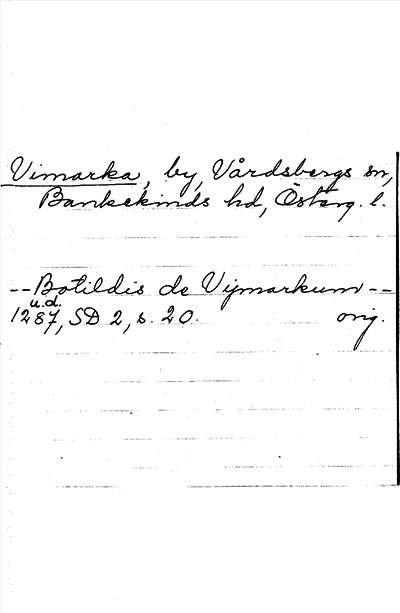 Vimarka, by, Vårdsbergs sn,
Bankekinds hd, Österg. l.
-- Botildis de Vijmarkum --
u.d.
1287, SD 2, s. 20. orig.